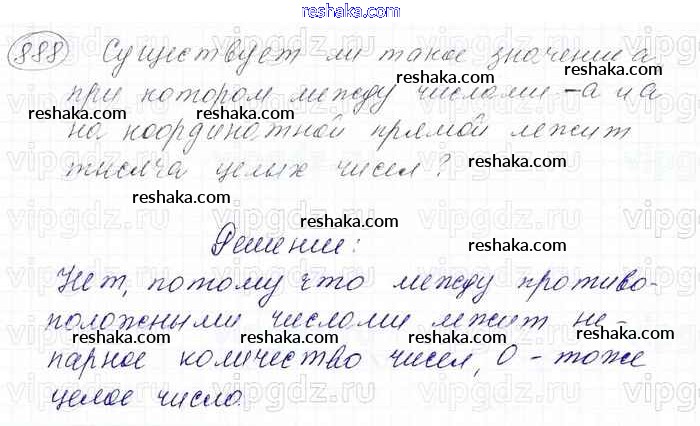 reshaka.com
888 Существует ли такое значение а,
reshaka.com
при котором между числами -а и а
reshaka.com reshaka.com
на координатной прямой лежит
тысяча целых чисел?
reshaka.com reshaka.com
Решение:
reshaka.com
Нет, потому что между противо-
reshaka.com reshaka.com
положными числами лежит не-
reshaka.com reshaka.com
парное количество чисел, 0 - тоже
целое число.
reshaka.com reshaka.com
vipgdz.ru vipgdz.ru vipgdz.ru